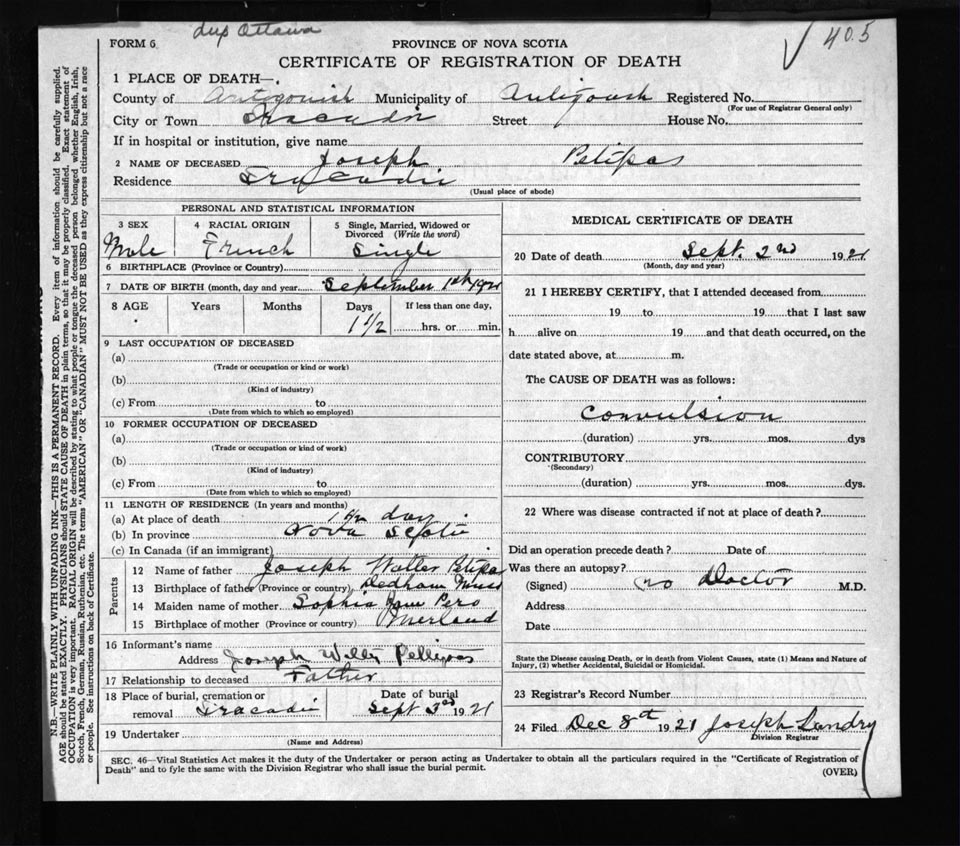 dup Ottawa
405
FORM 6
PROVINCE OF NOVA SCOTIA
CERTIFICATE OF REGISTRATION OF DEATH
1 PLACE OF DEATH—
County of Antigonish Municipality of Antigonish Registered No.
(For use of Registrar General only)
City or Town Tracadie Street House No.
If in hospital or institution, give name
2 NAME OF DECEASED Joseph Petipas
Residence Tracadie
(Usual place of abode)
PERSONAL AND STATISTICAL INFORMATION
3 SEX 4 RACIAL ORIGIN 5 Single, Married, Widowed or
Divorced (Write the word)
Male French Single
6 BIRTHPLACE (Province or Country)
7 DATE OF BIRTH (month, day and year) September 1st 1921
8 AGE Years Months Days If less than one day,
1 1/2 hrs. or min.
9 LAST OCCUPATION OF DECEASED
(a)
(Trade or occupation or kind or work)
(b)
(Kind of industry)
(c) From to
(Date from which to which so employed)
10 FORMER OCCUPATION OF DECEASED
(a)
(Trade or occupation or kind of work)
(b)
(Kind of industry)
(c) From to
(Date from which to which so employed)
11 LENGTH OF RESIDENCE (In years and months)
(a) At place of death 1 1/2 day
(b) In province Nova Scotia
(c) In Canada (if an immigrant)
Parents
12 Name of father Joseph Walter Petipas
13 Birthplace of father (Province or country) Dedham Mass
14 Maiden name of mother Sophia Jane Pero
15 Birthplace of mother (Province or country) Merland
16 Informant's name
Address Joseph Petipas
17 Relationship to deceased Father
18 Place of burial, cremation or Date of burial
removal Tracadie Sept 3rd 1921
19 Undertaker
(Name and Address)
MEDICAL CERTIFICATE OF DEATH
20 Date of death Sept. 2nd 1921
(Month, day and year)
21 I HEREBY CERTIFY, that I attended deceased from
19 to 19 that I last saw
h alive on 19 and that death occurred, on the
date stated above, at m.
The CAUSE OF DEATH was as follows:
Convulsion
(duration) yrs. mos. dys
CONTRIBUTORY
(Secondary)
(duration) yrs. mos. dys.
22 Where was disease contracted if not at place of death?
Did an operation precede death? Date of
Was there an autopsy?
(Signed) no Doctor M.D.
Address
Date
State the Disease causing Death, or in death from Violent Causes, state (1) Means and Nature of
Injury, (2) whether Accidental, Suicidal or Homicidal.
23 Registrar's Record Number
24 Filed Dec 8th 1921 Joseph Landry
Division Registrar
SEC. 46—Vital Statistics Act makes it the duty of the Undertaker or person acting as Undertaker to obtain all the particulars required in the "Certificate of Registration of
Death" and to fyle the same with the Division Registrar who shall issue the burial permit.
(OVER)
N.B.—WRITE PLAINLY WITH UNFADING INK—THIS IS A PERMANENT RECORD. Every item of information should be carefully supplied.
AGE should be stated EXACTLY. PHYSICIANS should STATE CAUSE OF DEATH in plain terms, so that it may be properly classified. Exact statement of
OCCUPATION is very important. RACIAL ORIGIN will be described by stating to what people or tongue the deceased person belonged whether English, Irish,
Scotch, French, German, Russian, Ruthenian, etc. The terms "AMERICAN" OR "CANADIAN" MUST NOT BE USED as they express citizenship but not a race
or people. See instructions on back of Certificate.